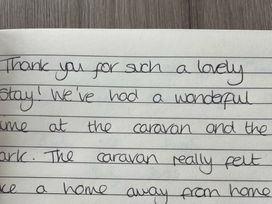 Thank you for such a lovely
stay! We've had a wonderful
ime at the caravan and the
ark. The caravan really felt
ke a home away from home